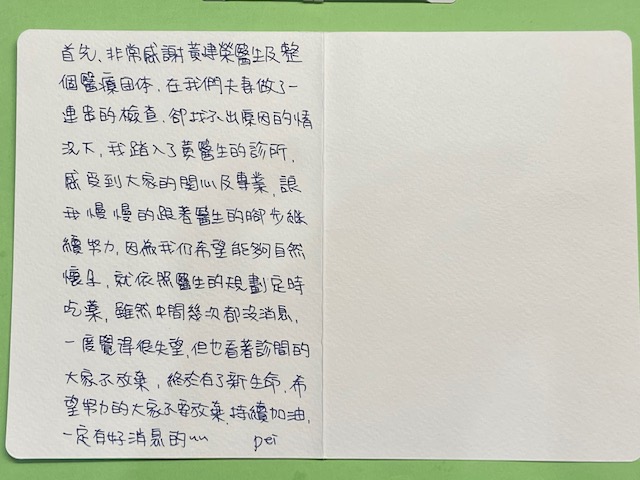 首先、非常感謝黃建榮醫生及整
個醫療团体，在我們夫妻做了一
連串的檢查，卻找不出原因的情
況下，我踏入了黃醫生的診所，
感受到大家的関心及專業，讓
我慢慢的跟著醫生的腳步繼
續努力，因為我仍希望能夠自然
懷孕，就依照醫生的規劃定時
吃藥，雖然中間幾次都沒消息，
一度覺得很失望，但也看著診間的
大家不放棄，終於有了新生命，希
望努力的大家不要放棄，持續加油，
一定有好消息的~~ pei